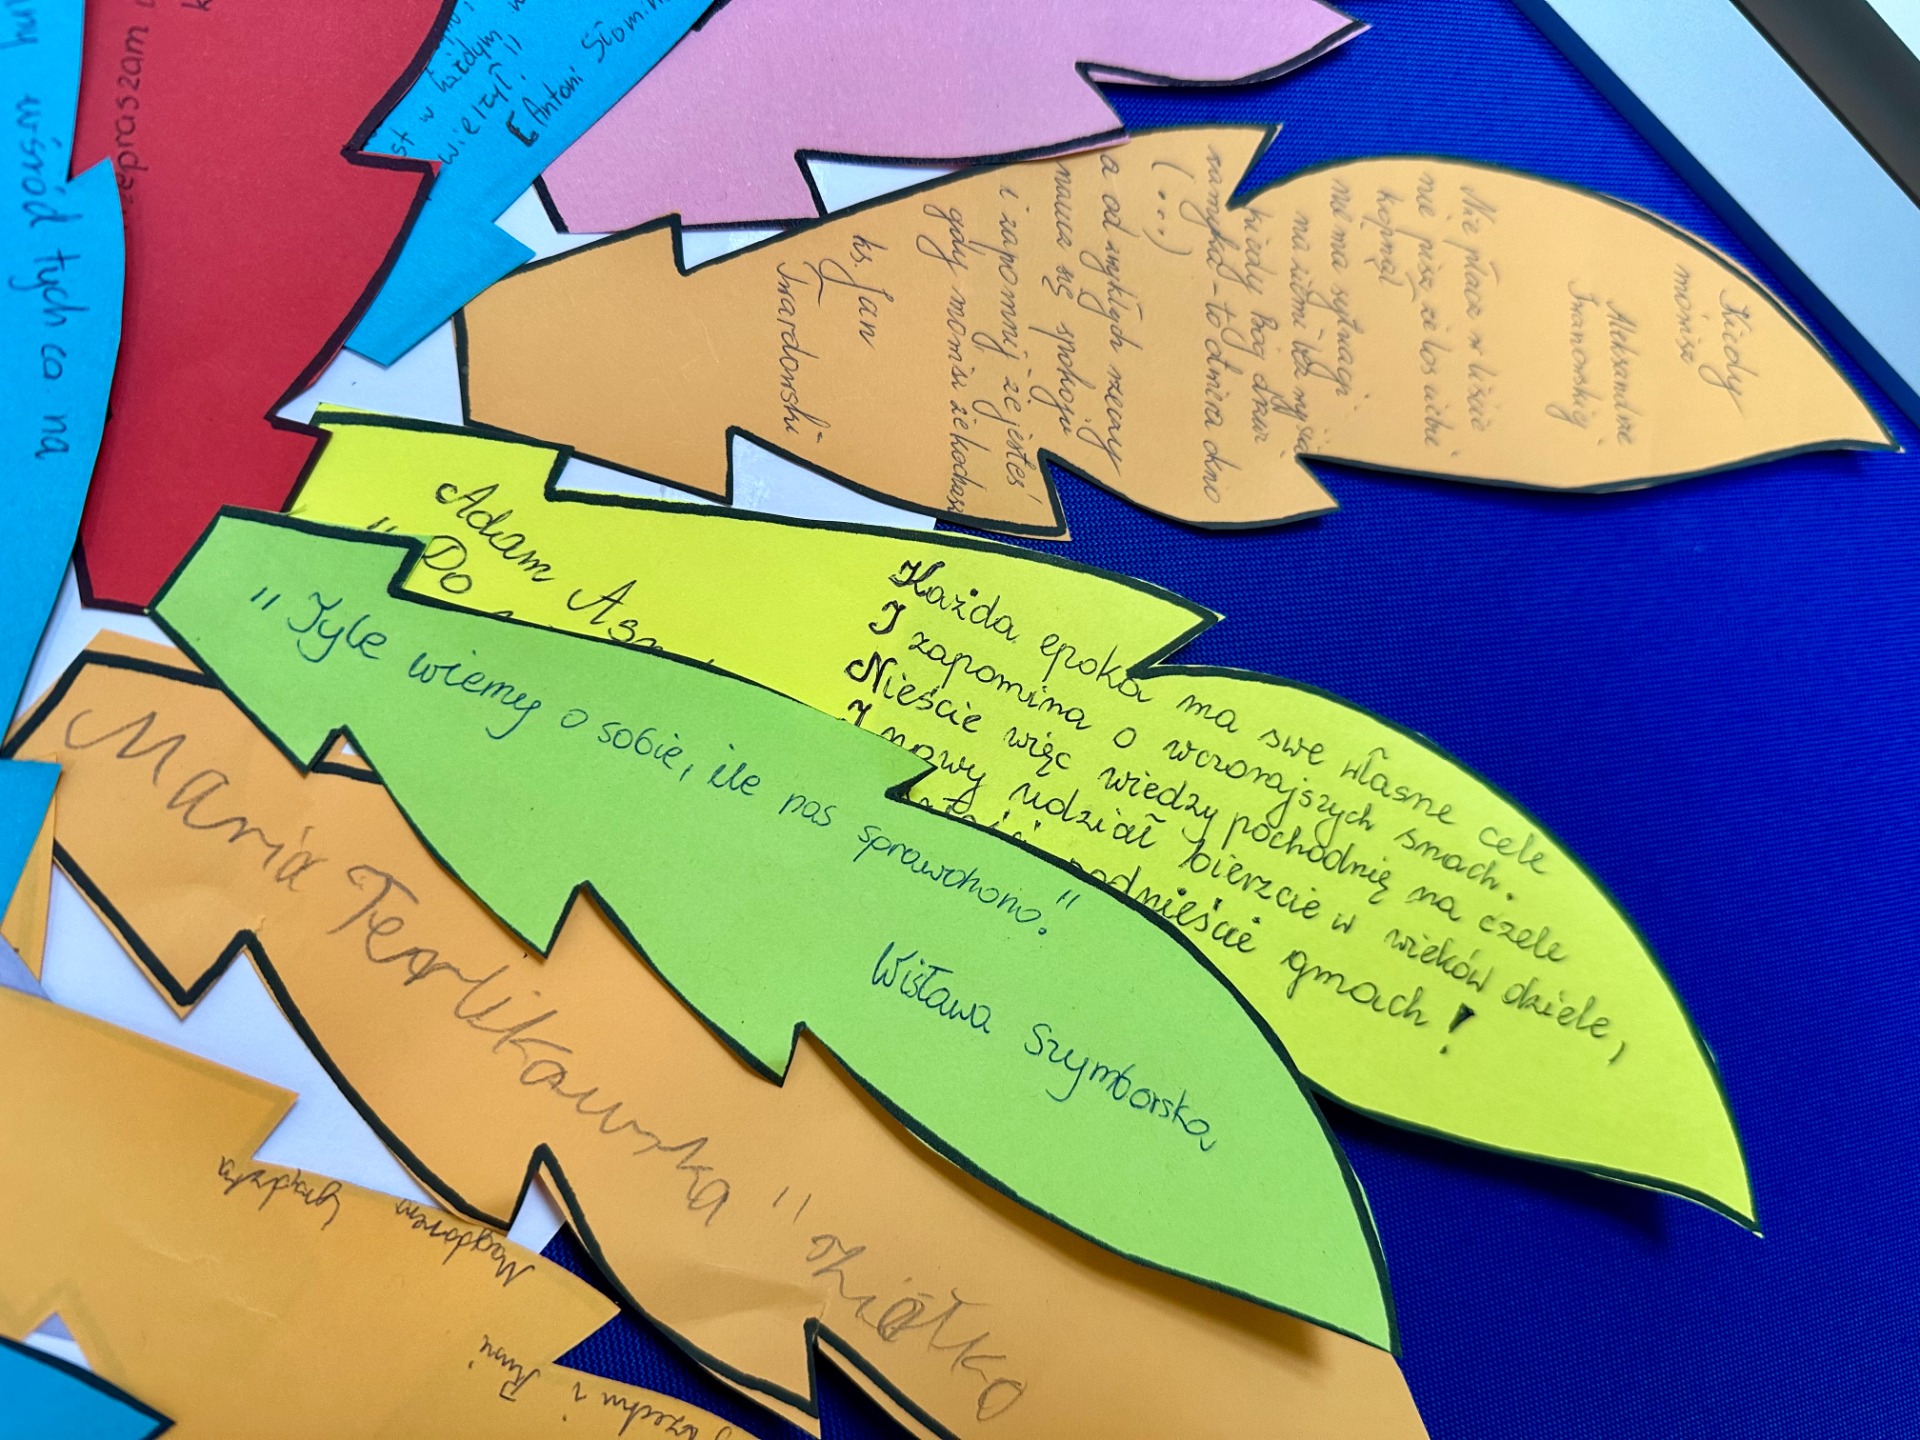 wśród tych co na
przepraszam
st w każdym
wierzył"
Antoni Słonim
Kiedy
mówisz
Aleksandrze
Iwanowskiej
Nie płacz w liście
nie pisz że los ciebie
kopnął
nie ma sytuacji
na ziemi bez wyjścia
kiedy Bóg drzwi
zamyka - to otwiera okno
(...)
a od zwykłych rzeczy
naucz się spokoju
i zapomnij że jesteś
gdy mówisz że kochasz
ks. Jan
Twardowski
Adam Asn
"Do
Każda epoka ma swe własne cele
I zapomina o wczorajszych snach.
Nieście więc wiedzy pochodnię na czele
I nowy udział bierzcie w wieków dziele,
podnieście gmach!
"Tyle wiemy o sobie, ile nas sprawdzono."
Wisława Szymborska
Maria Terlikowska "Kółko